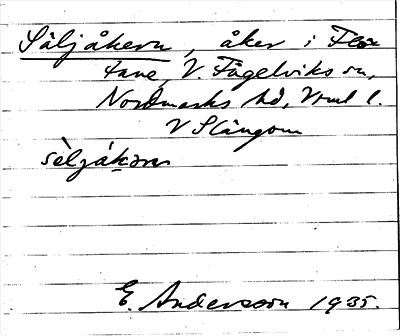 Säljåkern, åker i Flö
tane, V. Fågelviks sn,
Nordmarks hd, Vrml l.
V Slängom
sèljåkɔrn
E. Andersson 1935.